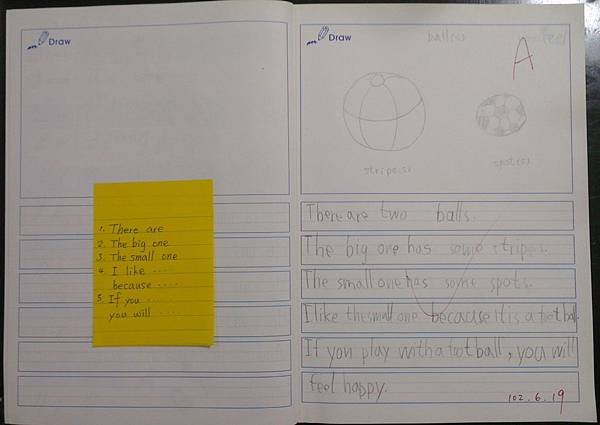 Draw
1. There are
2. The big one
3. The small one
4. I like ...
because ....
5. If you ......
you will ....
Draw
ball(s)
A
stripe(s)
spot(s)
There are two balls.
The big one has some stripes.
The small one has some spots.
I like the small one because it is a football.
If you play with a football, you will
feel happy.
102.6.19